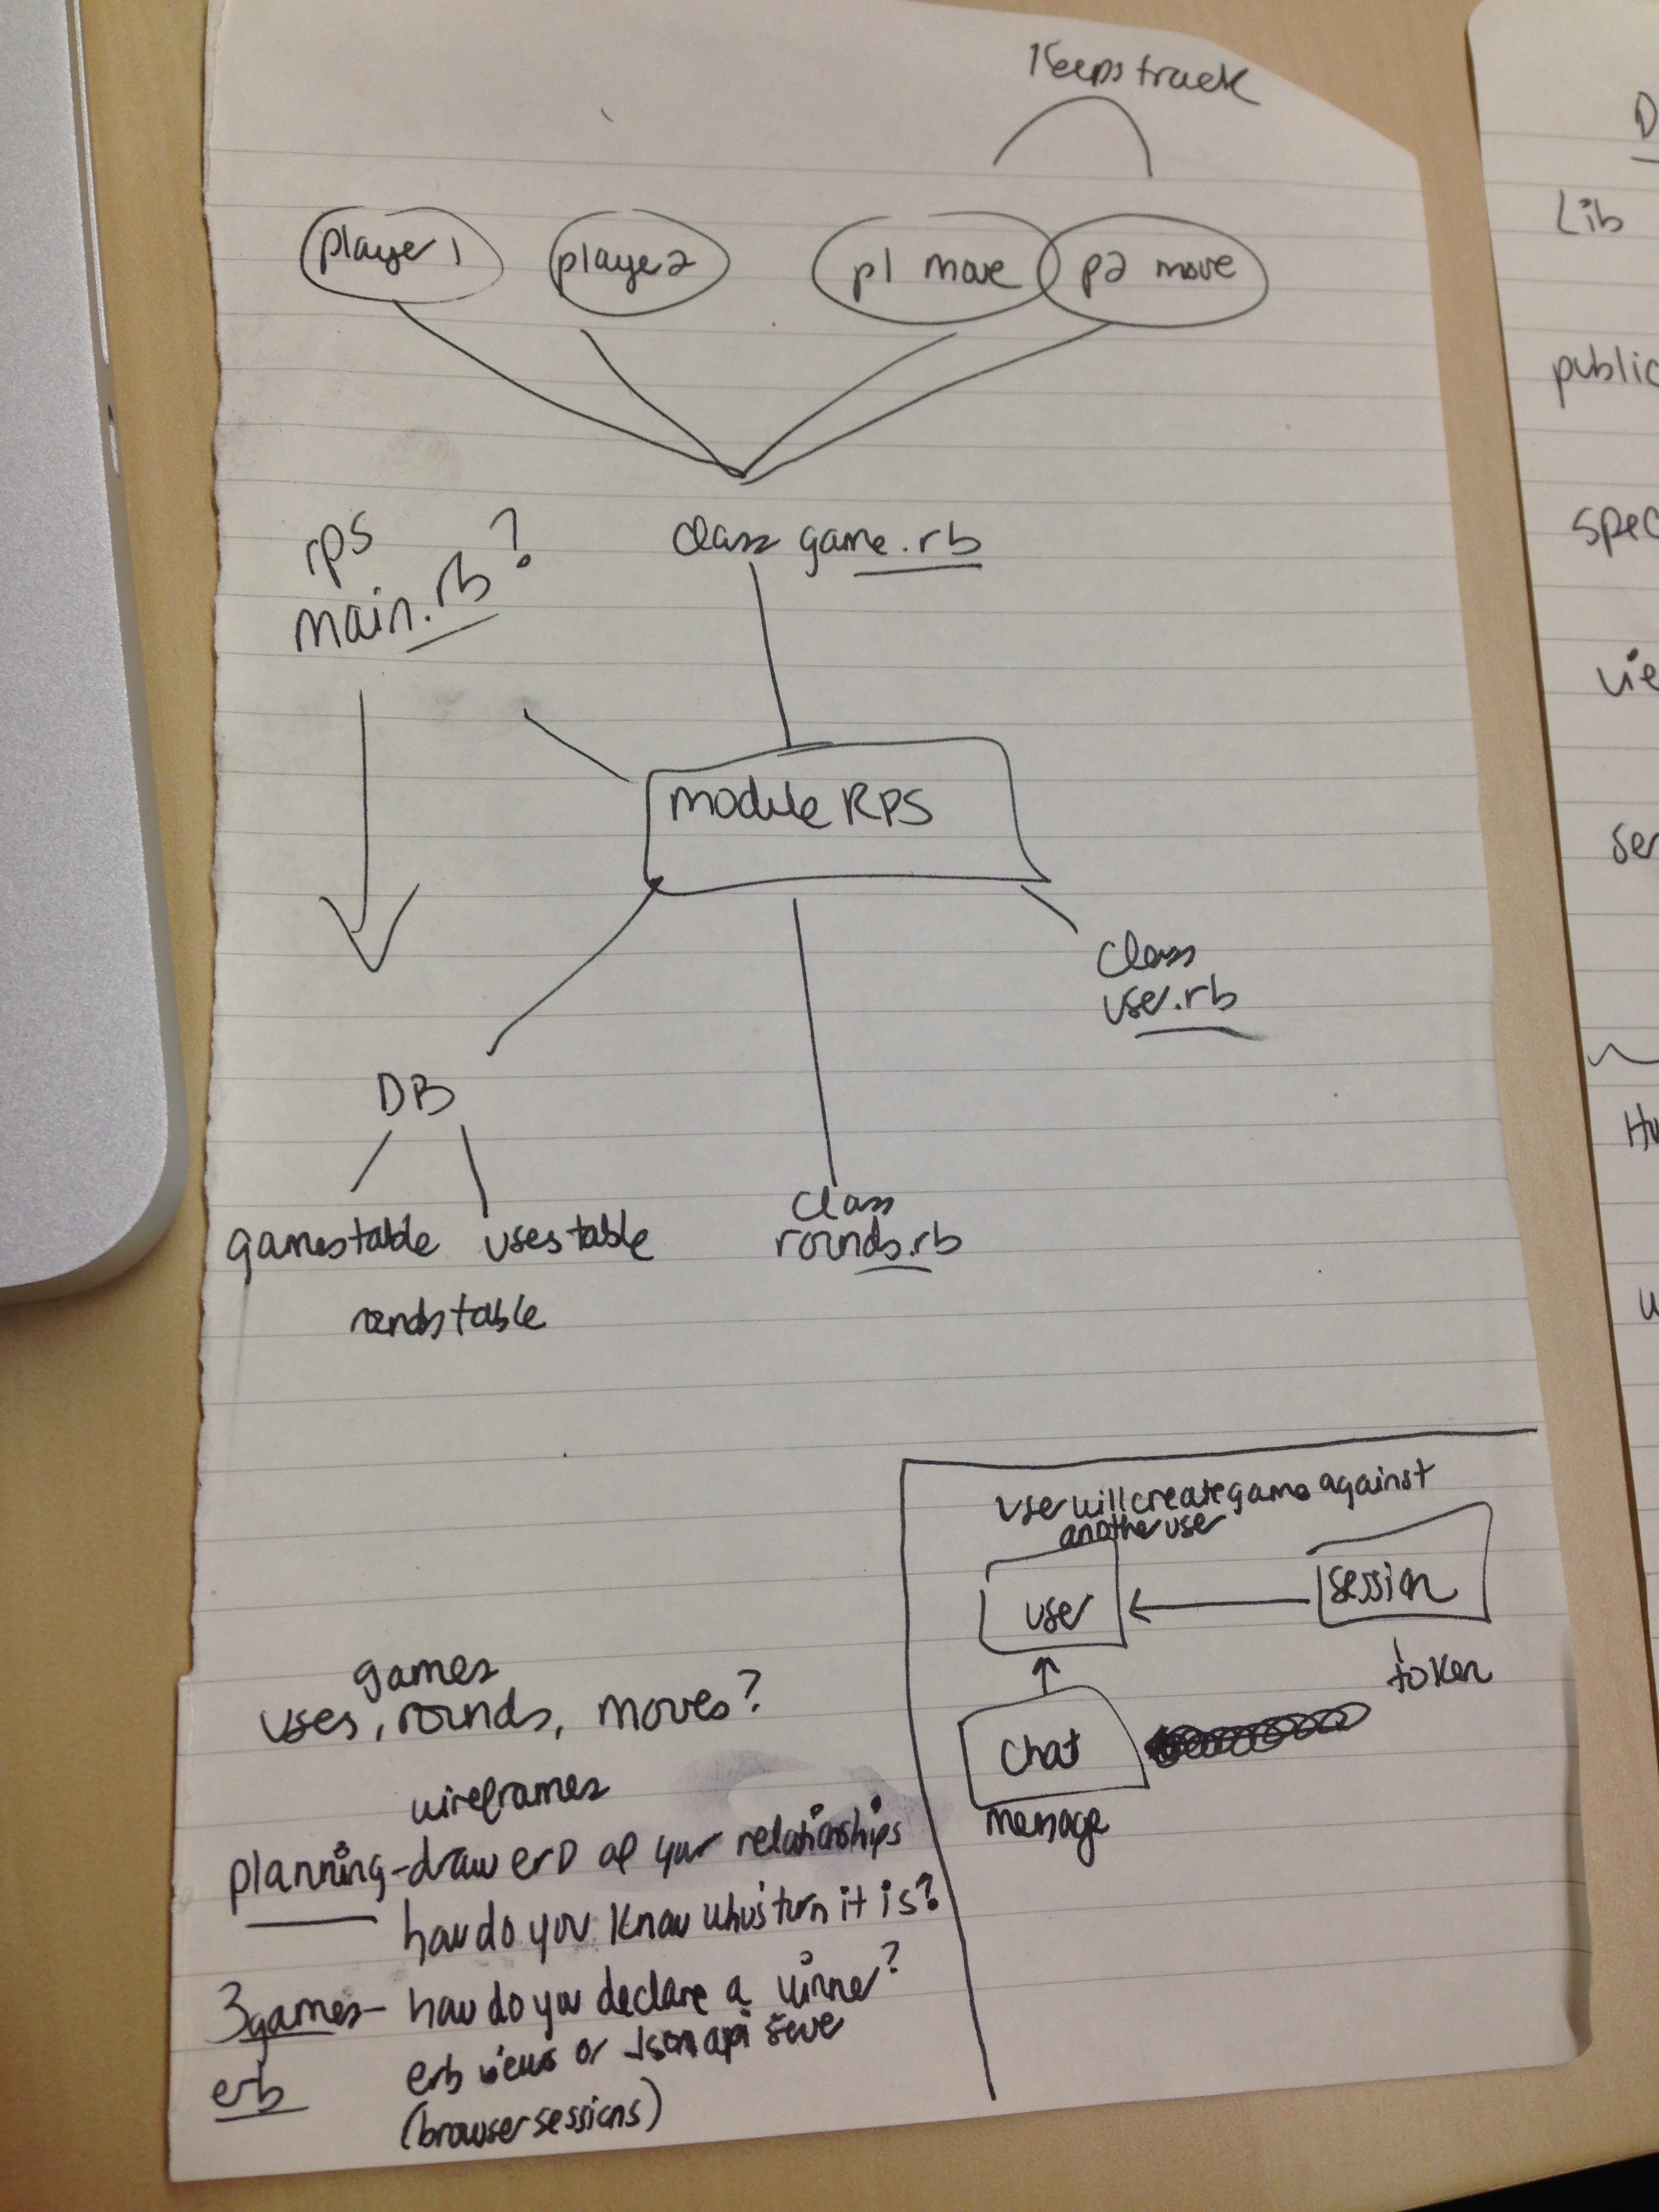 Keeps track
player 1
player 2
p1 move
p2 move
rps
main.rb ?
class game.rb
module RPS
class
user.rb
DB
gamestable
userstable
roundstable
class
rounds.rb
user will create game against
another user
user
session
token
chat
message
games
users, rounds, moves?
wireframes
planning - draw erD of your relationships
how do you know who's turn it is?
3games - how do you declare a winner?
erb
erb views or Json api
(browser sessions)
D
Lib
public
spec
vie
ser